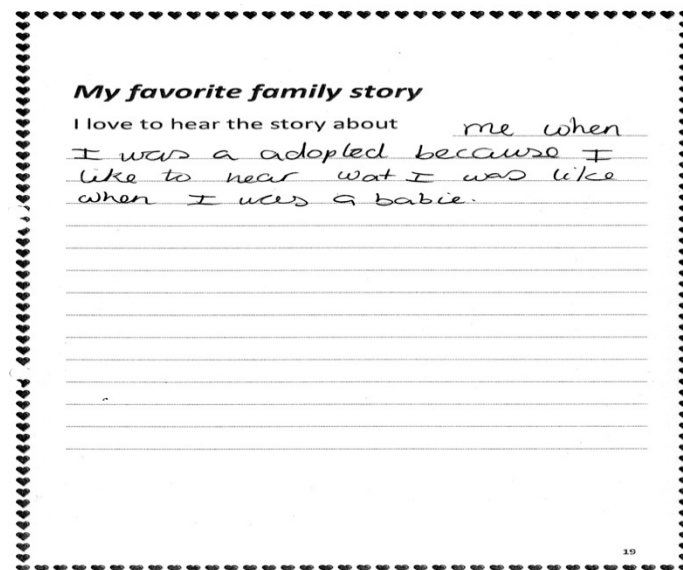 My favorite family story
I love to hear the story about me when
I was a adopled because I
like to hear wat I was like
when I wces a babie.
19